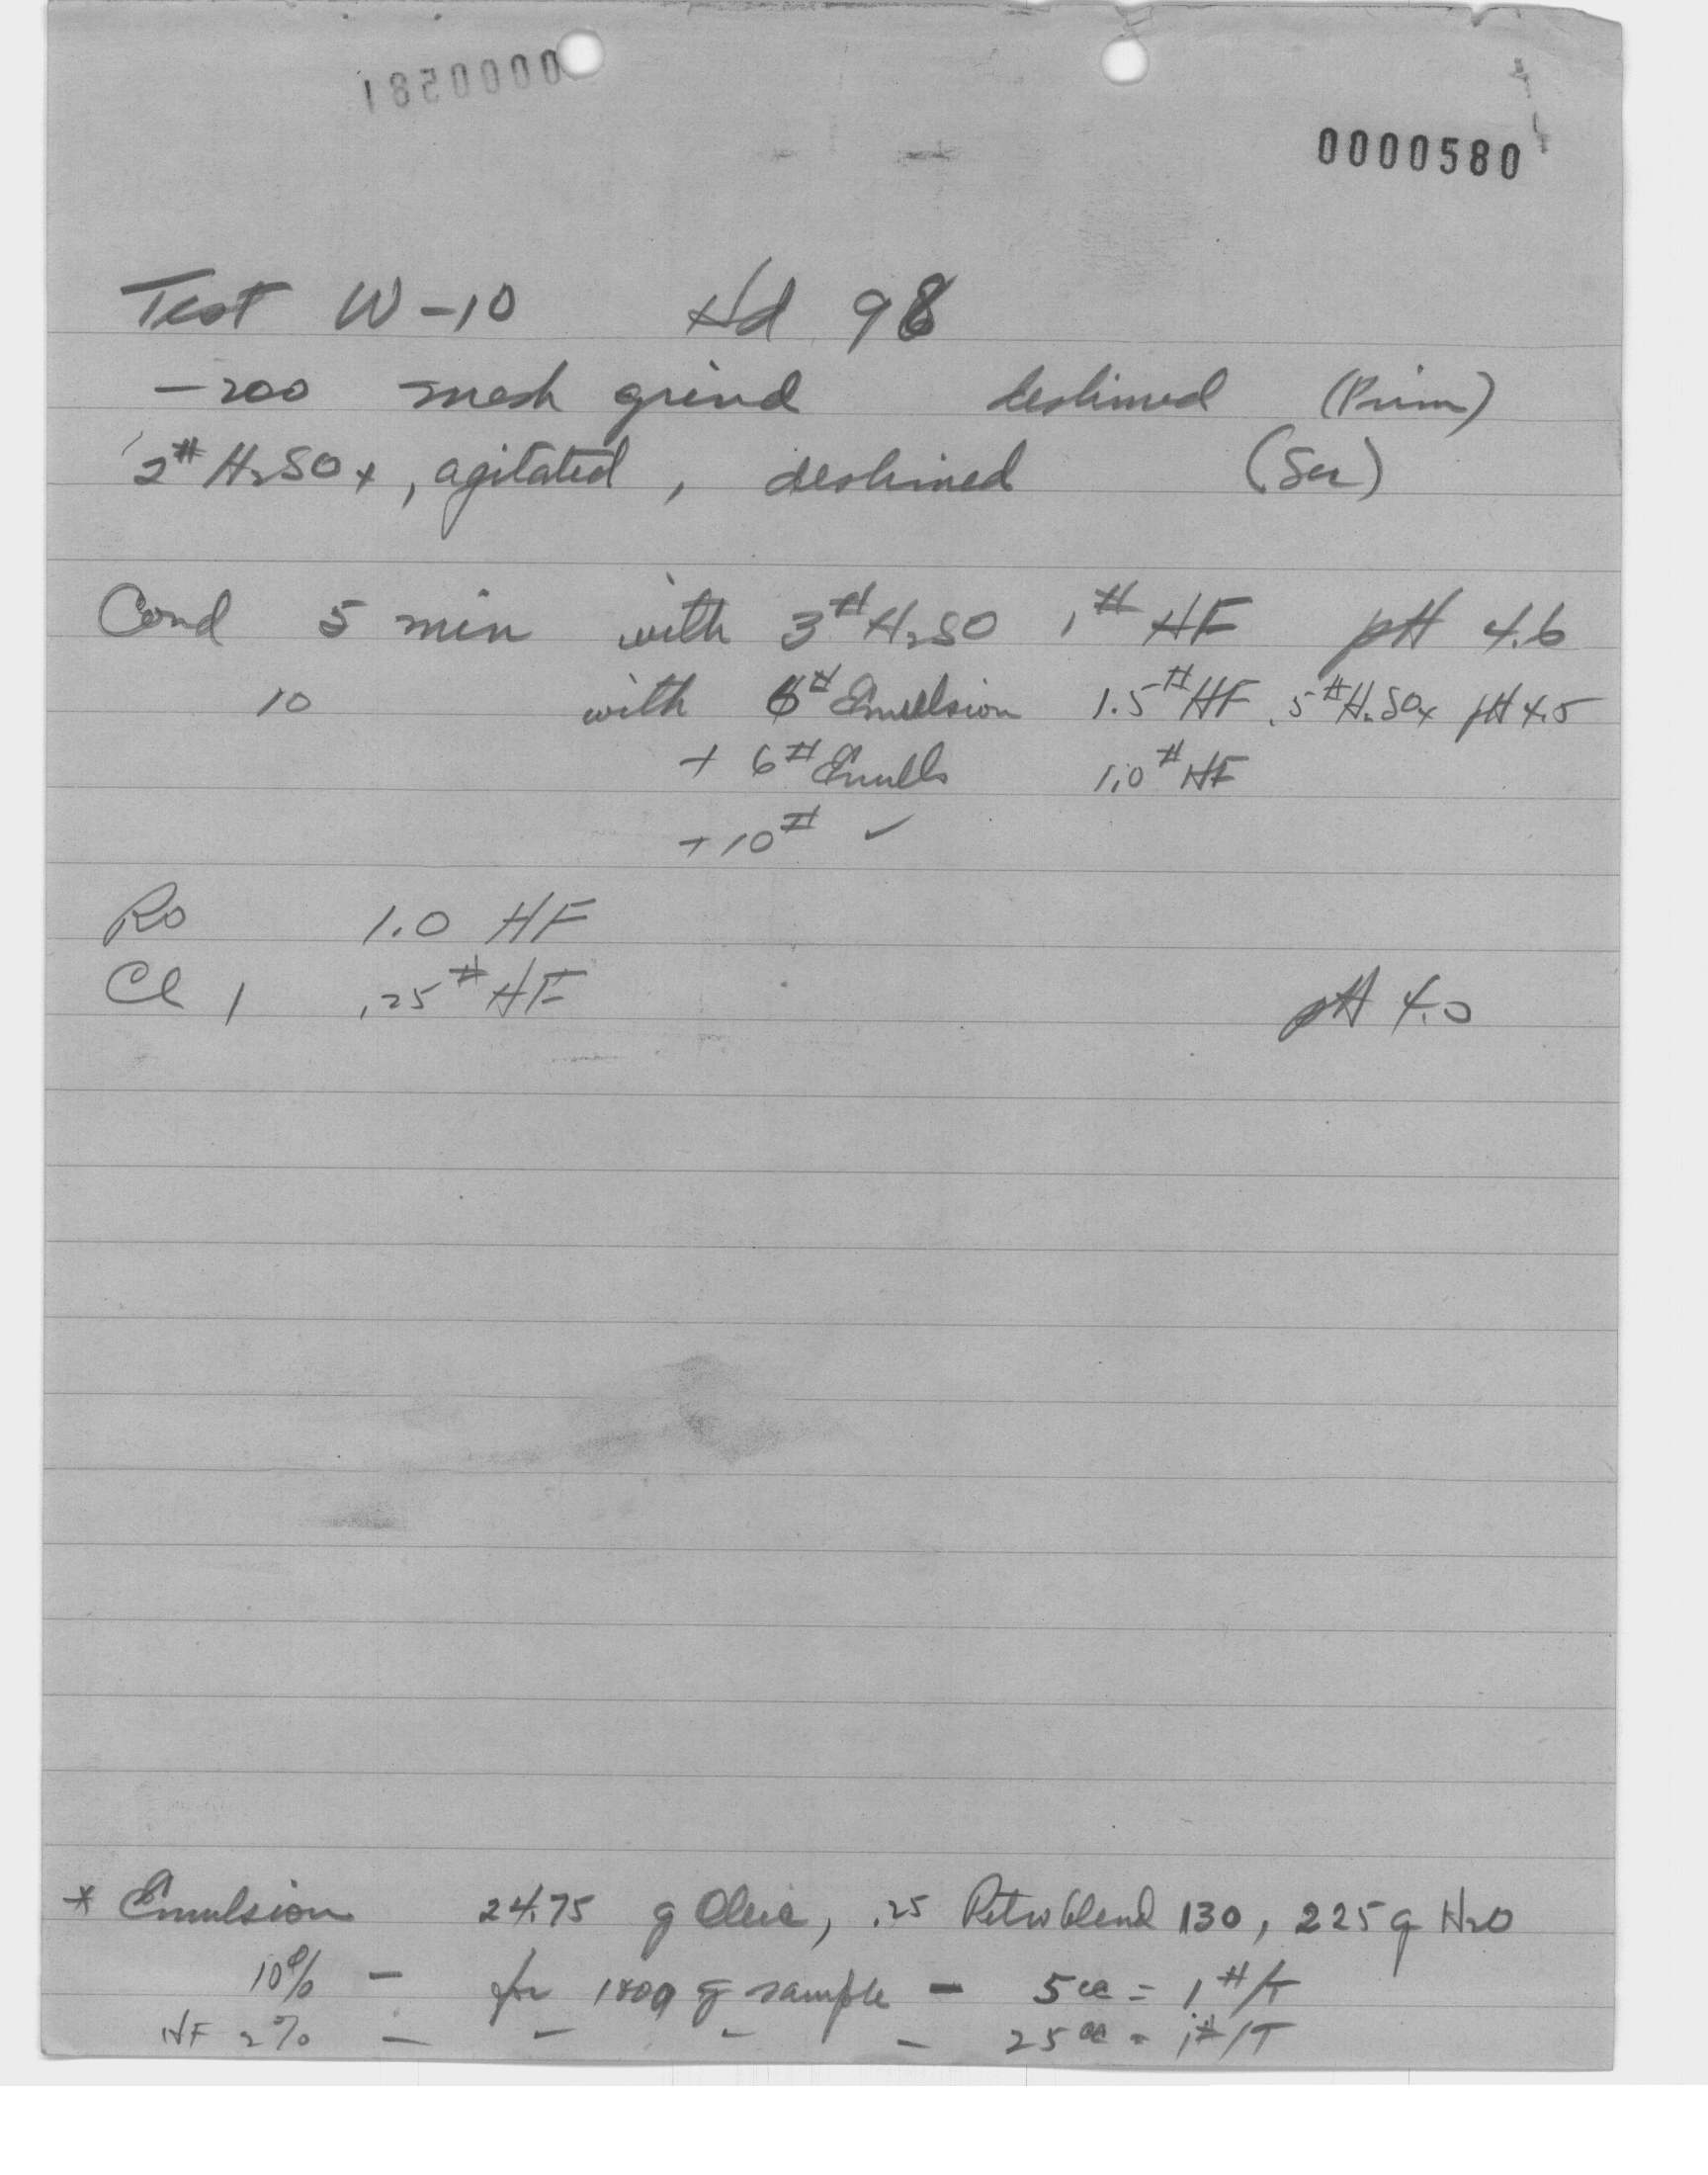 0000581
0000580
Test W-10 Hd 98
-200 mesh grind deslimed (Prim)
2# H2SO4, agitated, deslimed (Sec)
Cond 5 min with 3# H2SO 1# HF pH 4.6
10 with 6# Emulsion 1.5# HF .5# H2SO4 pH 4.5
+ 6# Emuls 1.0# HF
+10# ✓
Ro 1.0 HF
Cl 1 .25# HF pH 4.0
* Emulsion 24.75 g Oleic, .25 Petroblend 130, 225 g H2O
10% - for g sample - 5cc = 1#/T
HF 2% - - - - 25cc = 1#/T